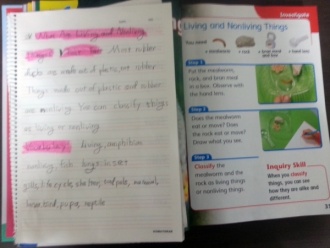 What Are Living and Nonliving
Things?
Most rubber
ducks are made out of plastic, not rubber.
Things made out of plastic and rubber
are nonliving. You can classify things
as living or nonliving
Vocabulary living, amphibian
nonliving,
gills, life cycle, shelter, tadpole, mammal,
pupa, reptile
Investigate
Living and Nonliving Things
You need
mealworm
rock
hand lens
Step 1
Put the mealworm,
rock, and bran meal
in a box. Observe with
the hand lens.
Step 2
Does the mealworm
eat or move? Does
the rock eat or move?
Draw what you see.
Step 3
Classify the
mealworm and the
rock as living things
or nonliving things.
Inquiry Skill
When you classify
things, you can see
how they are alike and
different.